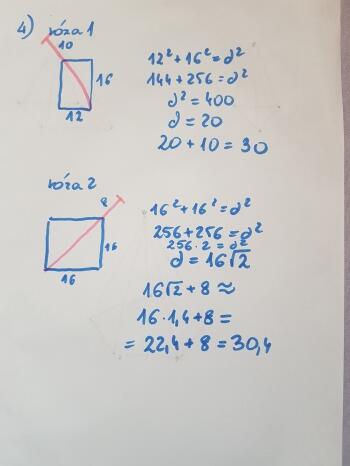 4) róża 1
10
16
12
12² + 16² = d²
144 + 256 = d²
d² = 400
d = 20
20 + 10 = 30
róża 2
8
16
16
16² + 16² = d²
256 + 256 = d²
256 · 2 = d²
d = 16√2
16√2 + 8 ≈
16 · 1,4 + 8 =
= 22,4 + 8 = 30,4